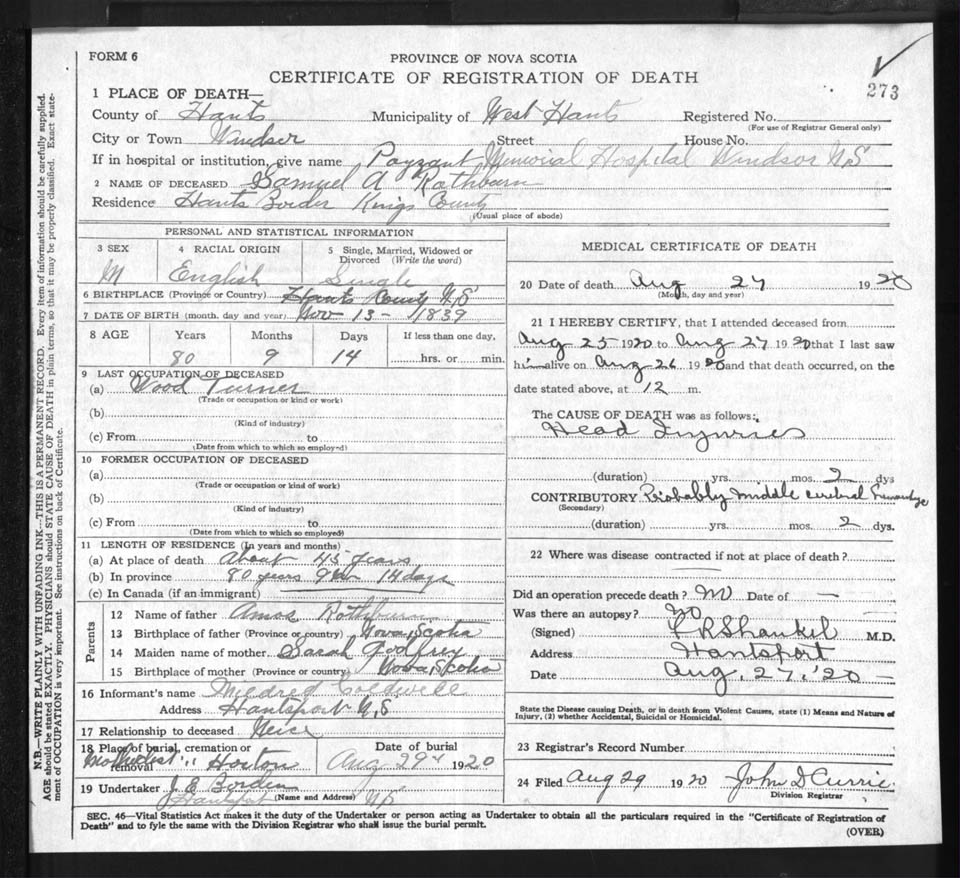 FORM 6
PROVINCE OF NOVA SCOTIA
CERTIFICATE OF REGISTRATION OF DEATH
273
1 PLACE OF DEATH—
County of Hants Municipality of West Hants Registered No.
(For use of Registrar General only)
City or Town Windsor Street House No.
If in hospital or institution, give name Payzant Memorial Hospital Windsor N.S
2 NAME OF DECEASED Samuel A Rathburn
Residence Hants Border Kings County
(Usual place of abode)
PERSONAL AND STATISTICAL INFORMATION
3 SEX M
4 RACIAL ORIGIN English
5 Single, Married, Widowed or Divorced (Write the word) Single
6 BIRTHPLACE (Province or Country) Hants County N.S
7 DATE OF BIRTH (month, day and year) Nov 13 - 1839
8 AGE Years Months Days If less than one day,
80 9 14 hrs. or min.
9 LAST OCCUPATION OF DECEASED
(a) Wood Turner
(Trade or occupation or kind or work)
(b)
(Kind of industry)
(c) From to
(Date from which to which so employed)
10 FORMER OCCUPATION OF DECEASED
(a)
(Trade or occupation or kind of work)
(b)
(Kind of industry)
(c) From to
(Date from which to which so employed)
11 LENGTH OF RESIDENCE (In years and months)
(a) At place of death About 45 years
(b) In province 80 years 9 14 days
(c) In Canada (if an immigrant)
Parents
12 Name of father Amos Rathburn
13 Birthplace of father (Province or country) Nova Scotia
14 Maiden name of mother Sarah Godfrey
15 Birthplace of mother (Province or country) Nova Scotia
16 Informant's name Mildred Coldwell
Address Hantsport N.S
17 Relationship to deceased Neice
18 Place of burial, cremation or removal Methodist Horton
Date of burial Aug 29 1920
19 Undertaker J. E Borden
Hantsport (Name and Address) N.S
MEDICAL CERTIFICATE OF DEATH
20 Date of death Aug 27 1920
(Month, day and year)
21 I HEREBY CERTIFY, that I attended deceased from
Aug 25 1920 to Aug 27 1920 that I last saw
him alive on Aug 26 1920 and that death occurred, on the
date stated above, at 12 m.
The CAUSE OF DEATH was as follows:
Head Injuries
(duration) yrs. mos. 2 dys
CONTRIBUTORY Probably middle cerebral
(Secondary)
(duration) yrs. mos. 2 dys.
22 Where was disease contracted if not at place of death?
Did an operation precede death? No Date of —
Was there an autopsy? No
(Signed) Shankel M.D.
Address Hantsport
Date Aug, 27, '20 —
State the Disease causing Death, or in death from Violent Causes, state (1) Means and Nature of
Injury, (2) whether Accidental, Suicidal or Homicidal.
23 Registrar's Record Number
24 Filed Aug 29 1920 John D Currie
Division Registrar
SEC. 46—Vital Statistics Act makes it the duty of the Undertaker or person acting as Undertaker to obtain all the particulars required in the "Certificate of Registration of
Death" and to fyle the same with the Division Registrar who shall issue the burial permit.
(OVER)
N.B.—WRITE PLAINLY WITH UNFADING INK—THIS IS A PERMANENT RECORD. Every item of information should be carefully supplied.
AGE should be stated EXACTLY. PHYSICIANS should STATE CAUSE OF DEATH in plain terms, so that it may be properly classified. Exact state-
ment of OCCUPATION is very important. See instructions on back of Certificate.